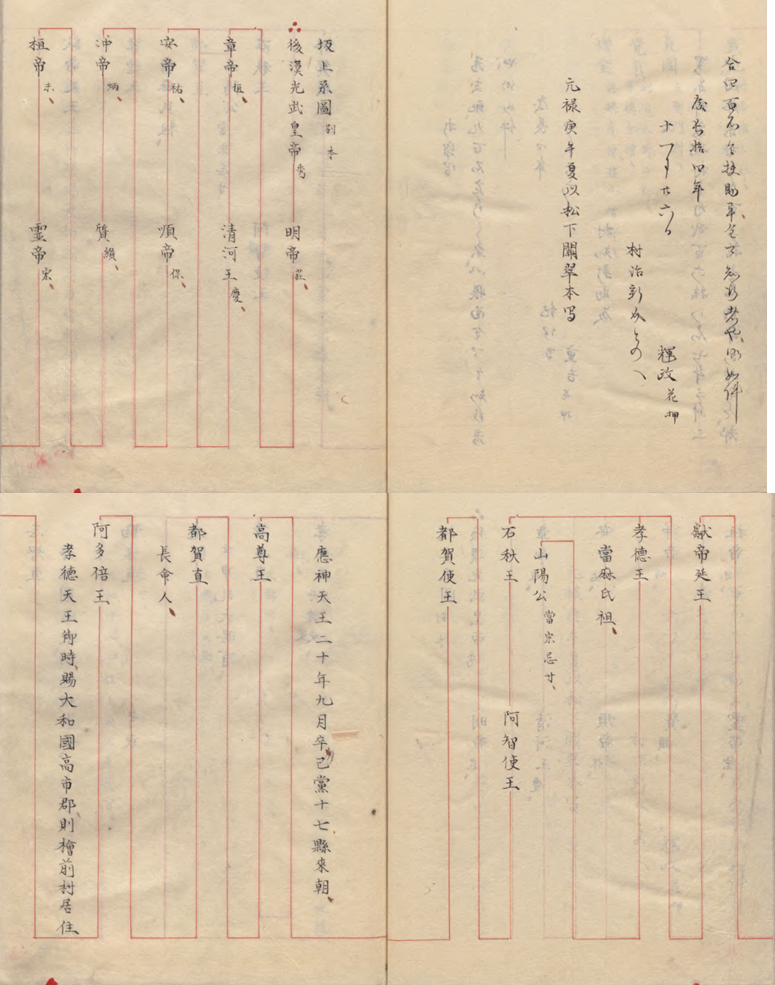 合四百石全扶助畢全可知行者也仍如件
慶長拾四年
十一月廿六日
村治新介とのへ
輝政 花押
元禄庚午夏以松下關翠本写
坂上系圖 别本
後漢光武皇帝 秀 明帝 莊
章帝 清河王慶
安帝 祐 順帝 保
冲帝 炳 質 纘
桓帝 靈帝 宏
獻帝延王
孝德王
當麻氏祖
山陽公 當宗忌寸
石秋王 阿智使王
都賀使王
應神天王二十年九月卒己黨十七縣來朝
高尊王
都賀直
長命人
阿多倍王
孝德天王御時賜大和國高市郡則檜前村居住